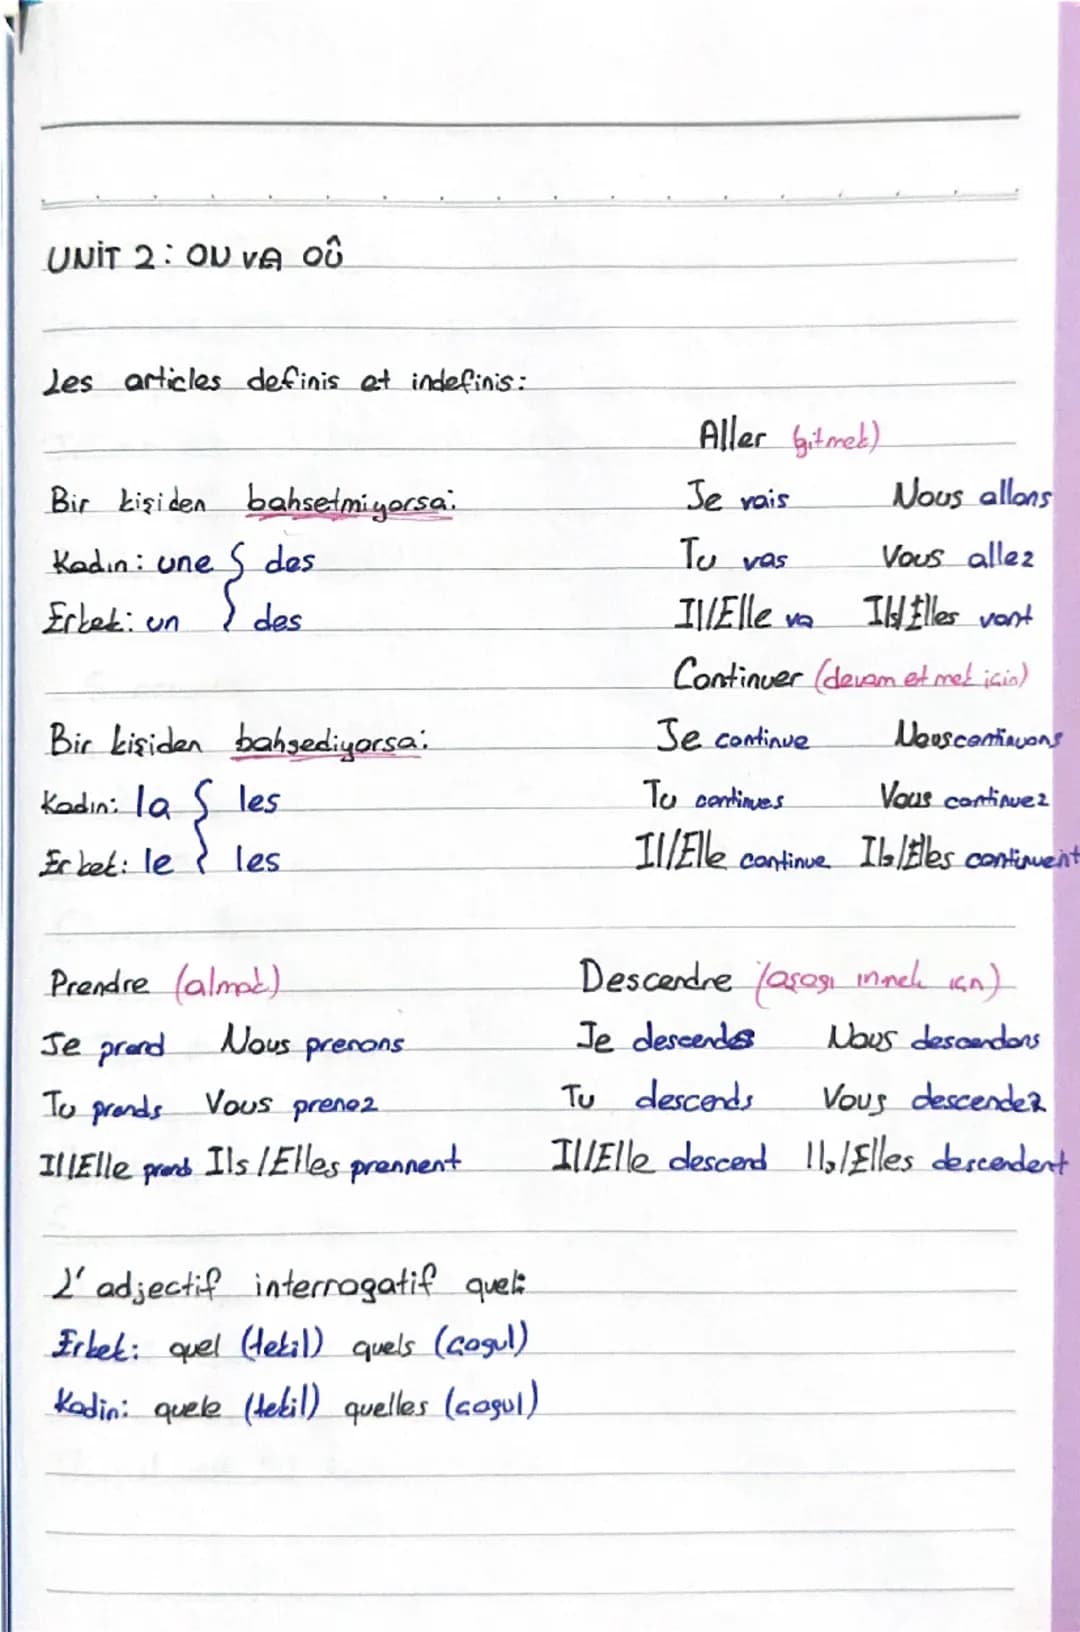 UNİT 2: OU VA OÛ
Les articles definis et indefinis:
Aller (gitmek)
Bir kişiden bahsetmiyorsa: Je vais Nous allons
Kadın: une { des Tu vas Vous allez
Erkek: un } des Il/Elle va Ils/Elles vont
Continuer (devam etmek için)
Bir kişiden bahsediyorsa: Je continue Nous continuons
Kadın: la { les Tu continues Vous continuez
Erkek: le } les Il/Elle continue Ils/Elles continuent
Prendre (almak) Descendre (aşagı inmek için)
Je prend Nous prenons Je descends Nous descendons
Tu prends Vous prenez Tu descends Vous descendez
Il/Elle prend Ils/Elles prennent Il/Elle descend Ils/Elles descendent
L'adjectif interrogatif quel:
Erkek: quel (tekil) quels (çogul)
Kadin: quele (tekil) quelles (çogul)